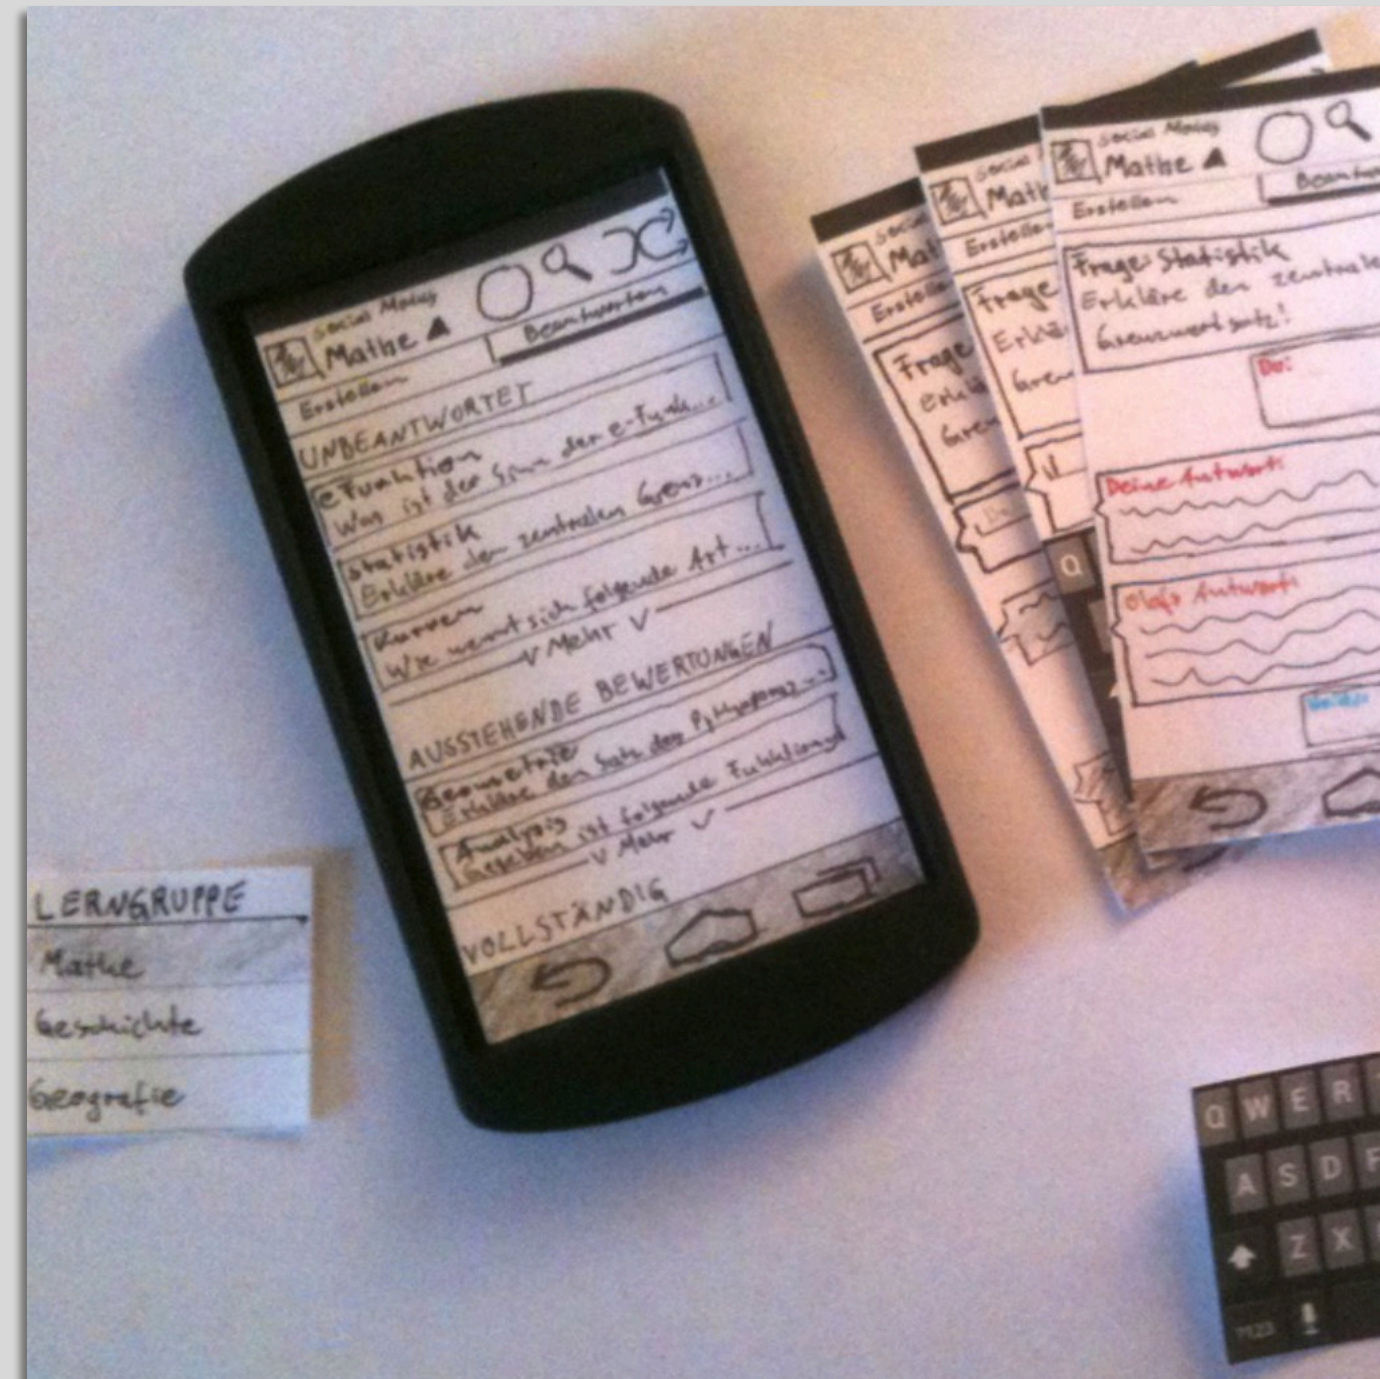 Social Modus
Mathe
Erstellen
Beantworten
UNBEANTWORTET
e Funktion
Was ist der Sinn der e-Funk...
Statistik
Erkläre den zentralen Grenz...
Kurven
Wie nennt sich folgende Art...
Mehr
AUSSTEHENDE BEWERTUNGEN
Geometrie
Erkläre den Satz des Pythagoras...
Analysis
Gegeben ist folgende Funktion
Mehr
VOLLSTÄNDIG
LERNGRUPPE
Mathe
Geschichte
Geografie
Social
Mat
Erstellen
Frage
Erklä
Gren
Social
Math
Erstellen
Frage
Erklä
Gren
Q
Social Modus
Mathe
Erstellen
Beantwor
Frage: Statistik
Erkläre den zentrale
Grenzwertsatz!
Du:
Deine Antwort:
Olafs Antwort:
Q W E R
A S D F
Z X
?123